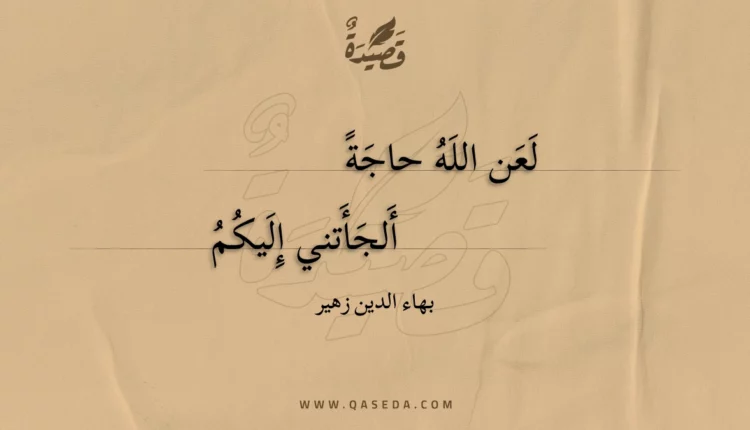 قَصِيدَةٌ
لَعَن اللَهُ حاجَةً
أَلجَأَتني إِلَيكُمُ
بهاء الدين زهير
WWW.QASEDA.COM